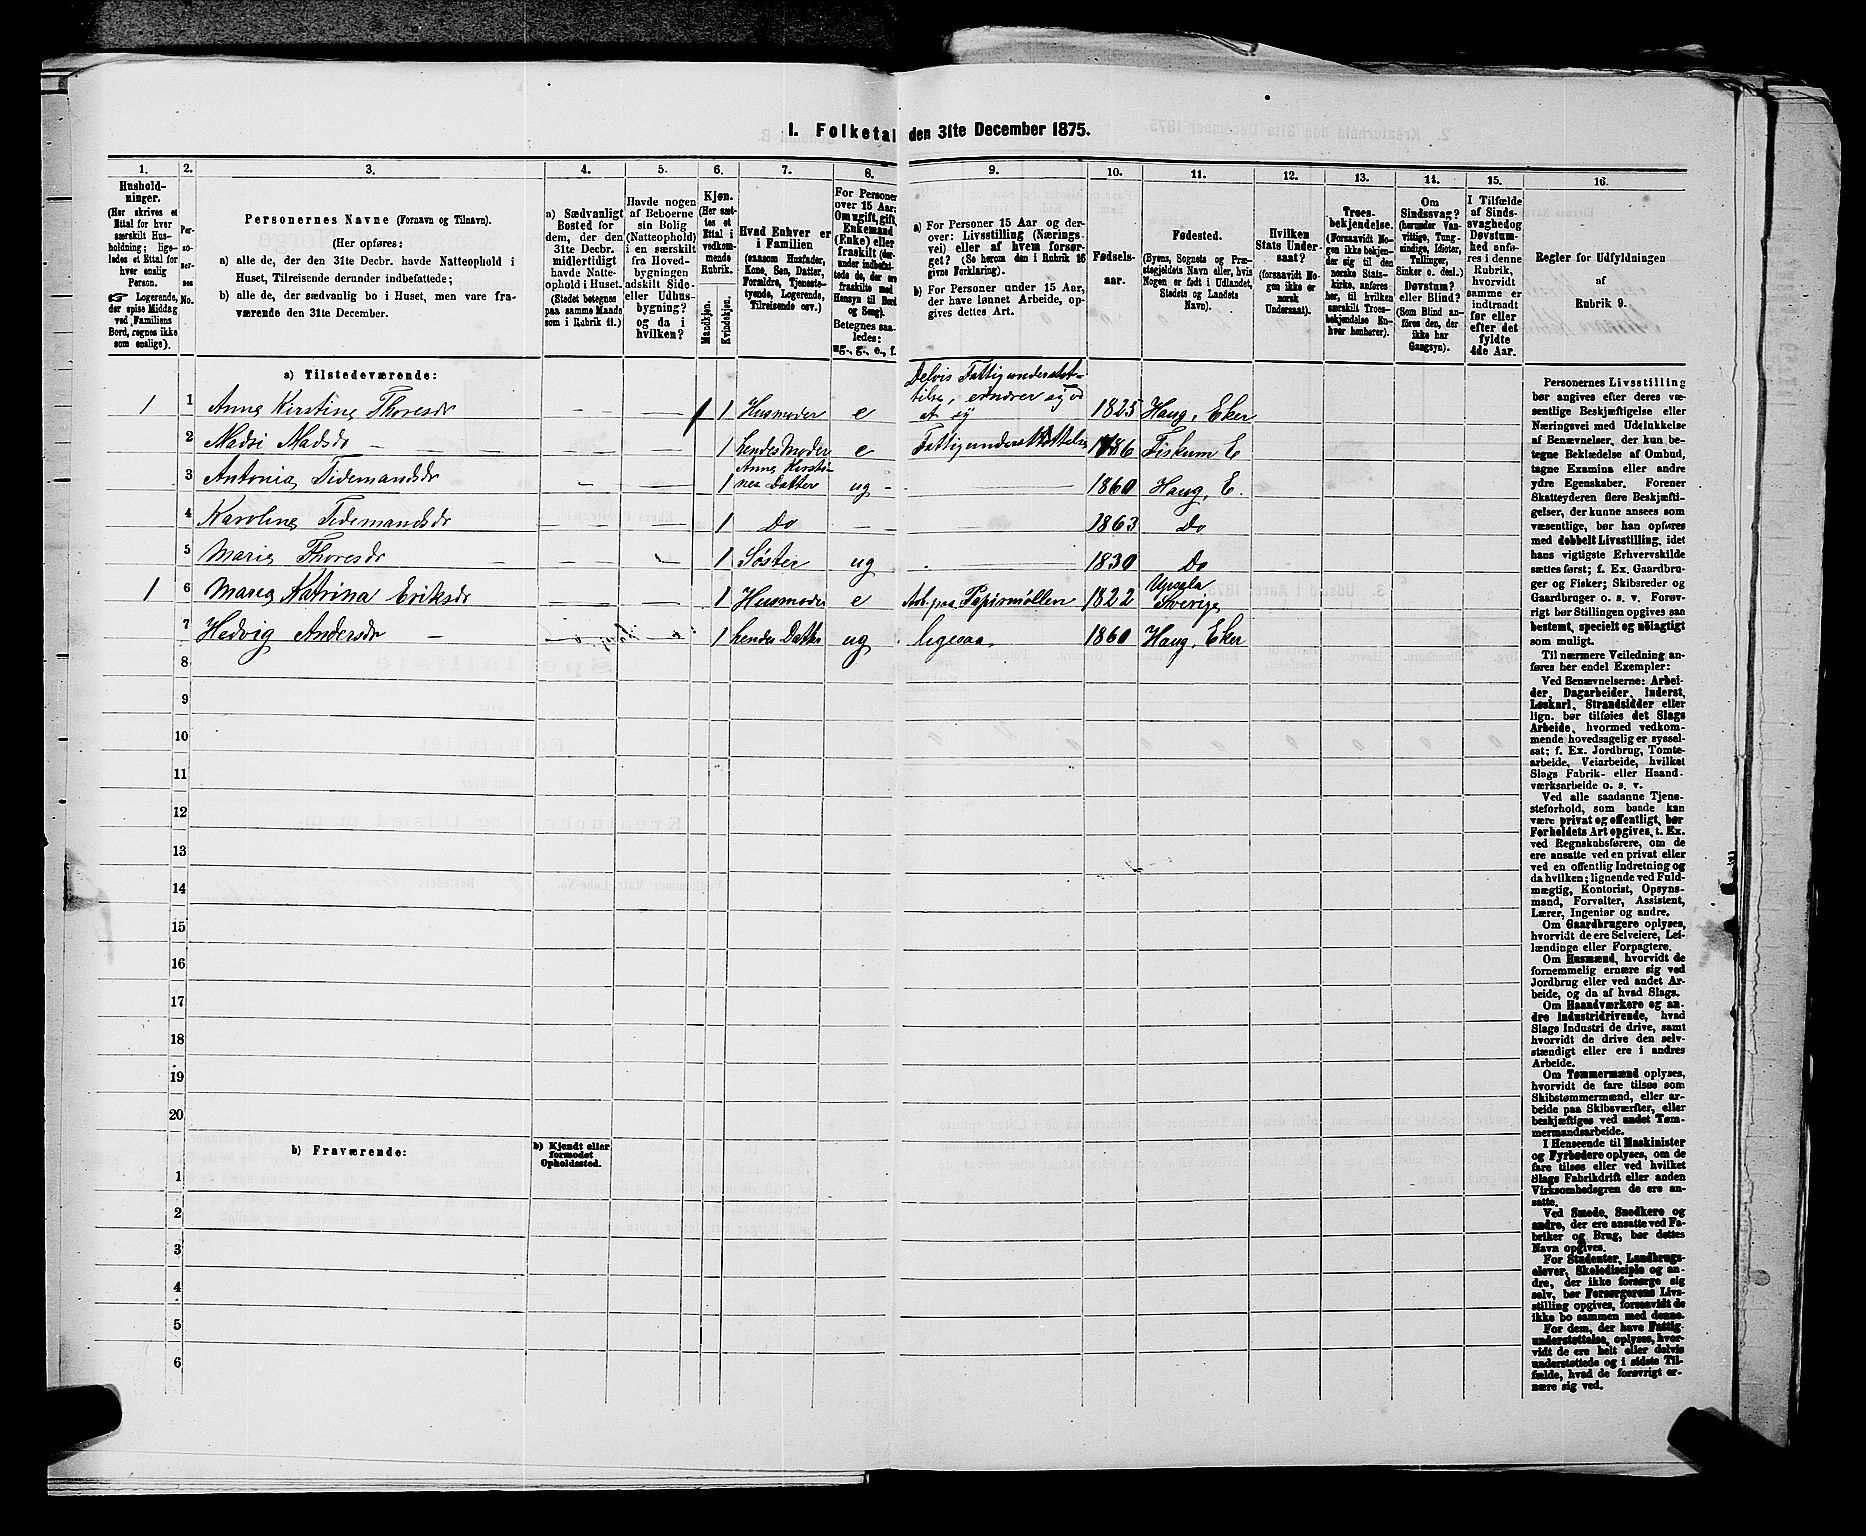 1. Folketal den 31te December 1875.
1.
Hushold-
ninger.
(Her skrives et
Ettal for hver
særskilt Hus-
holdning; lige-
ledes et Ettal for
hver enslig
Person.
☞ Logerende,
der spise Middag
ved Familiens
Bord, regnes ikke
som enslige).
2.
Per-
so-
ner-
nes
No.
3.
Personernes Navne (Fornavn og Tilnavn).
(Her opføres:
a) alle de, der den 31te Decbr. havde Natteophold i
Huset, Tilreisende derunder indbefattede;
b) alle de, der sædvanlig bo i Huset, men vare fra-
værende den 31te December.
4.
a) Sædvanligt
Bosted for
dem, der den
31te Decbr.
midlertidigt
havde Natte-
ophold i Huset.
(Stedet betegnes
paa samme Maade
som i Rubrik 11.)
5.
Havde nogen
af Beboerne
sin Bolig
(Natteophold)
i en særskilt
fra Hoved-
bygningen
adskilt Side-
eller Udhus-
bygning?
og da i
hvilken?
6.
Kjøn.
(Her sæt-
tes et
Ettal i
vedkom-
mende
Rubrik.
Mandkjøn.
Kvindekjøn.
7.
Hvad Enhver er
i Familien
(saasom Husfader,
Kone, Søn, Datter,
Forældre, Tjeneste-
tyende, Logerende,
Tilreisende osv.)
8.
For Personer
over 15 Aar:
Om ugift, gift,
Enkemand
(Enke) eller
fraskilt (der-
under indbefat-
tede de, der ere
fraskilte med
Hensyn til Bord
og Seng).
Betegnes saa-
ledes:
ug., g., e., f.
9.
a) For Personer 15 Aar og der-
over: Livsstilling (Nærings-
vei) eller af hvem forsør-
get? (Se herom den i Rubrik 16
givne Forklaring).
b) For Personer under 15 Aar,
der have lønnet Arbeide, op-
gives dettes Art.
10.
Fødsels-
aar.
11.
Fødested.
(Byens, Sognets og Præ-
stegjeldets Navn eller, hvis
Nogen er født i Udlandet,
Stedets og Landets
Navn).
12.
Hvilken
Stats Under-
saat?
(forsaavidt No-
gen ikke er
norsk
Undersaat).
13.
Troes-
bekjendelse.
(Forsaavidt No-
gen ikke bekjen-
der sig til den
norske Stats-
kirke, anføres
her, til hvilken
særskilt Troes-
bekjendelse En-
hver henhører).
14.
Om
Sindssvag?
(herunder Van-
vittige, Tung-
sindige, Idioter,
Tullinger,
Sinker o. desl.)
Døvstum?
eller Blind?
(Som Blind an-
føres den, der
ikke har
Gangsyn).
15.
I Tilfælde
af Sinds-
svaghed og
Døvstum-
hed anfø-
res i denne
Rubrik,
hvorvidt
samme er
indtraadt
før eller
efter det
fyldte
4de Aar.
16.
Regler for Udfyldningen
af
Rubrik 9.
a) Tilstedeværende:
1 1 Anne Kirstine Thoresdr — — 1 Husmoder e Delvis Fattigunderstøt-
telse, ernærer sig ved
at sy 1825 Haug, Eker
2 Madsi Madsdr — — — 1 hendes Moder e Fattigunderstøttelse 1786 Fiskum E
3 Antonia Tidemandsdr — — 1 Anne Kirsti-
nes Datter ug — 1860 Haug, E.
4 Karoline Tidemandsdr — — 1 Do — — 1863 Do
5 Marie Thoresdr — — 1 Søster ug 1830 Do
1 6 Maria Katrina Eriksdr — — 1 Husmoder e Arb. paa Papirmøllen 1822 Upsala
Sverige
7 Hedvig Andersdr — 1 hendes Datter ug ligesaa 1860 Haug, Eker
8
9
10
11
12
13
14
15
16
17
18
19
20
b) Fraværende:
b) Kjendt eller
formodet
Opholdssted.
1
2
3
4
5
6
Personernes Livsstilling
bør angives efter deres væ-
sentlige Beskjæftigelse eller
Næringsvei med Udelukkelse
af Benævnelser, der kun be-
tegne Beklædelse af Ombud,
tagne Examina eller andre
ydre Egenskaber. Forener
Skatteyderen flere Beskjæfti-
gelser, der kunne ansees som
væsentlige, bør han opføres
med dobbelt Livsstilling, idet
hans vigtigste Erhvervskilde
sættes først; f. Ex. Gaardbru-
ger og Fisker; Skibsreder og
Gaardbruger o. s. v. Forøv-
rigt bør Stillingen opgives saa
bestemt, specielt og nöiagtigt
som muligt.
Til nærmere Veiledning an-
føres her endel Exempler:
Ved Benævnelserne: Arbei-
der, Dagarbeider, Inderst,
Løskarl, Strandsidder eller
lign. bør tilføies det Slags
Arbeide, hvormed vedkom-
mende hovedsagelig er syssel-
sat; f. Ex. Jordbrug, Tomte-
arbeide, Veiarbeide, hvilket
Slags Fabrik- eller Haand-
værksarbeide o. s. v.
Ved alle saadanne Tjene-
steforhold, som baade kan
være privat og offentligt, bør
Forholdets Art opgives, t. Ex.
ved Regnskabsførere, om de
ere ansatte ved en privat eller
ved en offentlig Indretning og
da hvilken; lignende ved Fuld-
mægtig, Kontorist, Opsyns-
mand, Forvalter, Assistent,
Lærer, Ingeniør og andre.
Om Gaardbrugere oplyses,
hvorvidt de ere Selveiere, Lei-
lændinge eller Forpagtere.
Om Husmænd, hvorvidt de
fornemmelig ernære sig ved
Jordbrug eller ved andet Ar-
beide, og da af hvad Slags.
Om Haandværkere og an-
dre industridrivende, hvad
Slags Industri de drive, samt
hvorvidt de drive den selv-
stændigt eller ere i andres
Arbeide.
Om Tømmermænd oplyses,
hvorvidt de fare tilsøs som
Skibstømmermænd, eller ar-
beide paa Skibsværfter, eller
beskjæftiges ved andet Tøm-
mermandsarbeide.
I Henseende til Maskinister
og Fyrbødere oplyses, om de
fare tilsøs eller ved hvilket
Slags Fabrikdrift eller anden
Virksomhedsgren de ere an-
satte.
Ved Smede, Snedkere og
andre, der ere ansatte ved Fa-
briker og Brug, bør dettes
Navn opgives.
For Studenter, Landbrugs-
elever, Skoledisciple og an-
dre, der ikke forsørge sig
selv, bør Forsørgerens Livs-
stilling opgives, forsaavidt de
ikke bo sammen med denne.
For dem, der have Fattig-
understøttelse, oplyses, hvor-
vidt de ere helt eller delvis
understøttede og i sidste Til-
fælde, hvad de forøvrigt er-
nære sig ved.